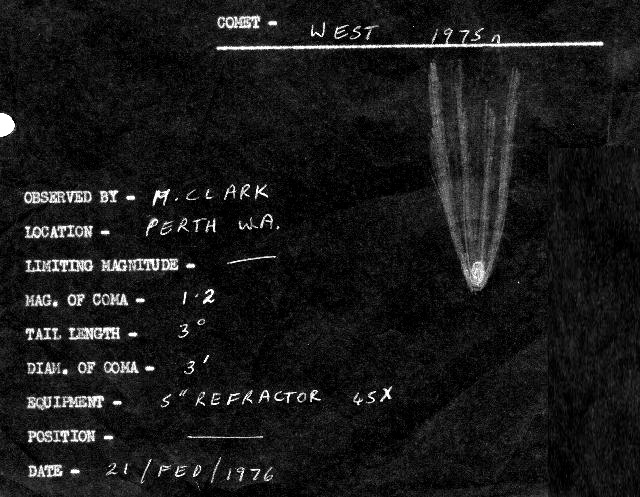 COMET - WEST 1975n
OBSERVED BY - M. CLARK
LOCATION - PERTH W.A.
LIMITING MAGNITUDE - —
MAG. OF COMA - 1.2
TAIL LENGTH - 3°
DIAM. OF COMA - 3'
EQUIPMENT - 5" REFRACTOR 45X
POSITION - —
DATE - 21/FEB/1976